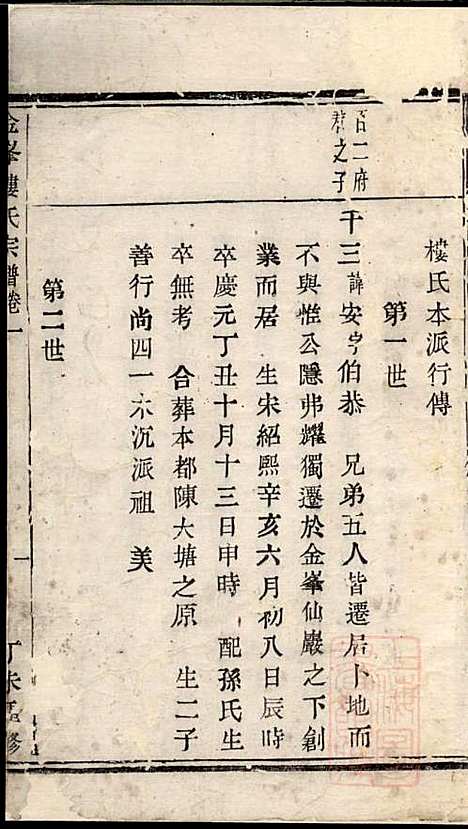 樓氏本派行傳
第一世
百二府
君之子
千三諱安字伯恭 兄弟五人皆遷居卜地而
不與惟公隱弗耀獨遷於金峯仙巖之下創
業而居 生宋紹熙辛亥六月初八日辰時
卒慶元丁丑十月十三日申時 配孫氏生
卒無考 合葬本都陳大塘之原 生二子
善行尚四一木沉派祖 美
第二世
金峯樓氏宗譜卷一
一
丁未重修